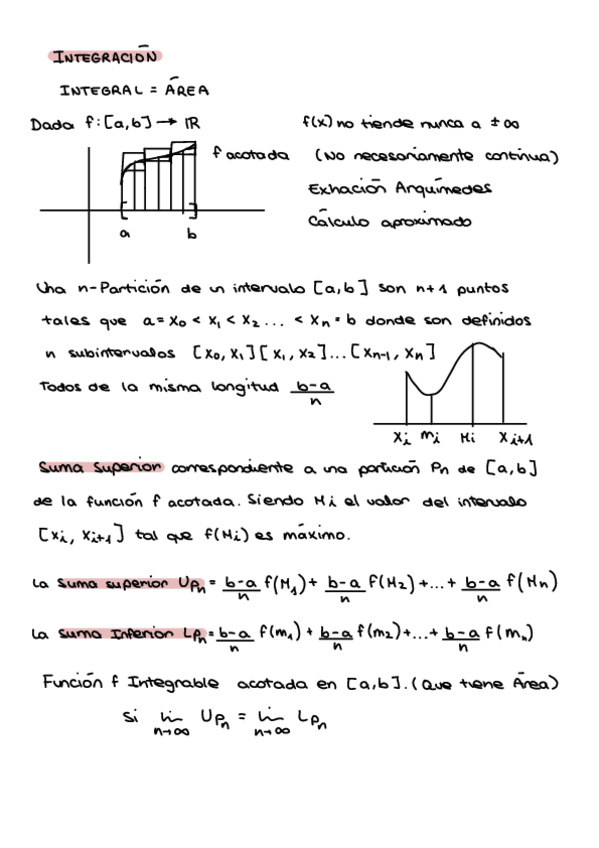 INTEGRACIÓN
INTEGRAL = ÁREA
Dada f: [a,b] → IR
f(x) no tiende nunca a ±∞
f acotada
(No necesariamente continua)
Exhación Arquímedes
Cálculo aproximado
a b
Una n-Partición de un intervalo [a,b] son n+1 puntos
tales que a = x₀ < x₁ < x₂ ... < xₙ = b donde son definidos
n subintervalos [x₀, x₁] [x₁, x₂] ... [xₙ₋₁, xₙ]
Todos de la misma longitud (b-a)/n
xᵢ mᵢ Mᵢ xᵢ₊₁
Suma Superior correspondiente a una partición Pₙ de [a,b]
de la función f acotada. Siendo Mᵢ el valor del intervalo
[xᵢ, xᵢ₊₁] tal que f(Mᵢ) es máximo.
La suma superior U_Pₙ = (b-a)/n f(M₁) + (b-a)/n f(M₂) + ... + (b-a)/n f(Mₙ)
La suma Inferior L_Pₙ = (b-a)/n f(m₁) + (b-a)/n f(m₂) + ... + (b-a)/n f(mₙ)
Función f Integrable acotada en [a,b]. (Que tiene Área)
si lim n→∞ U_Pₙ = lim n→∞ L_Pₙ